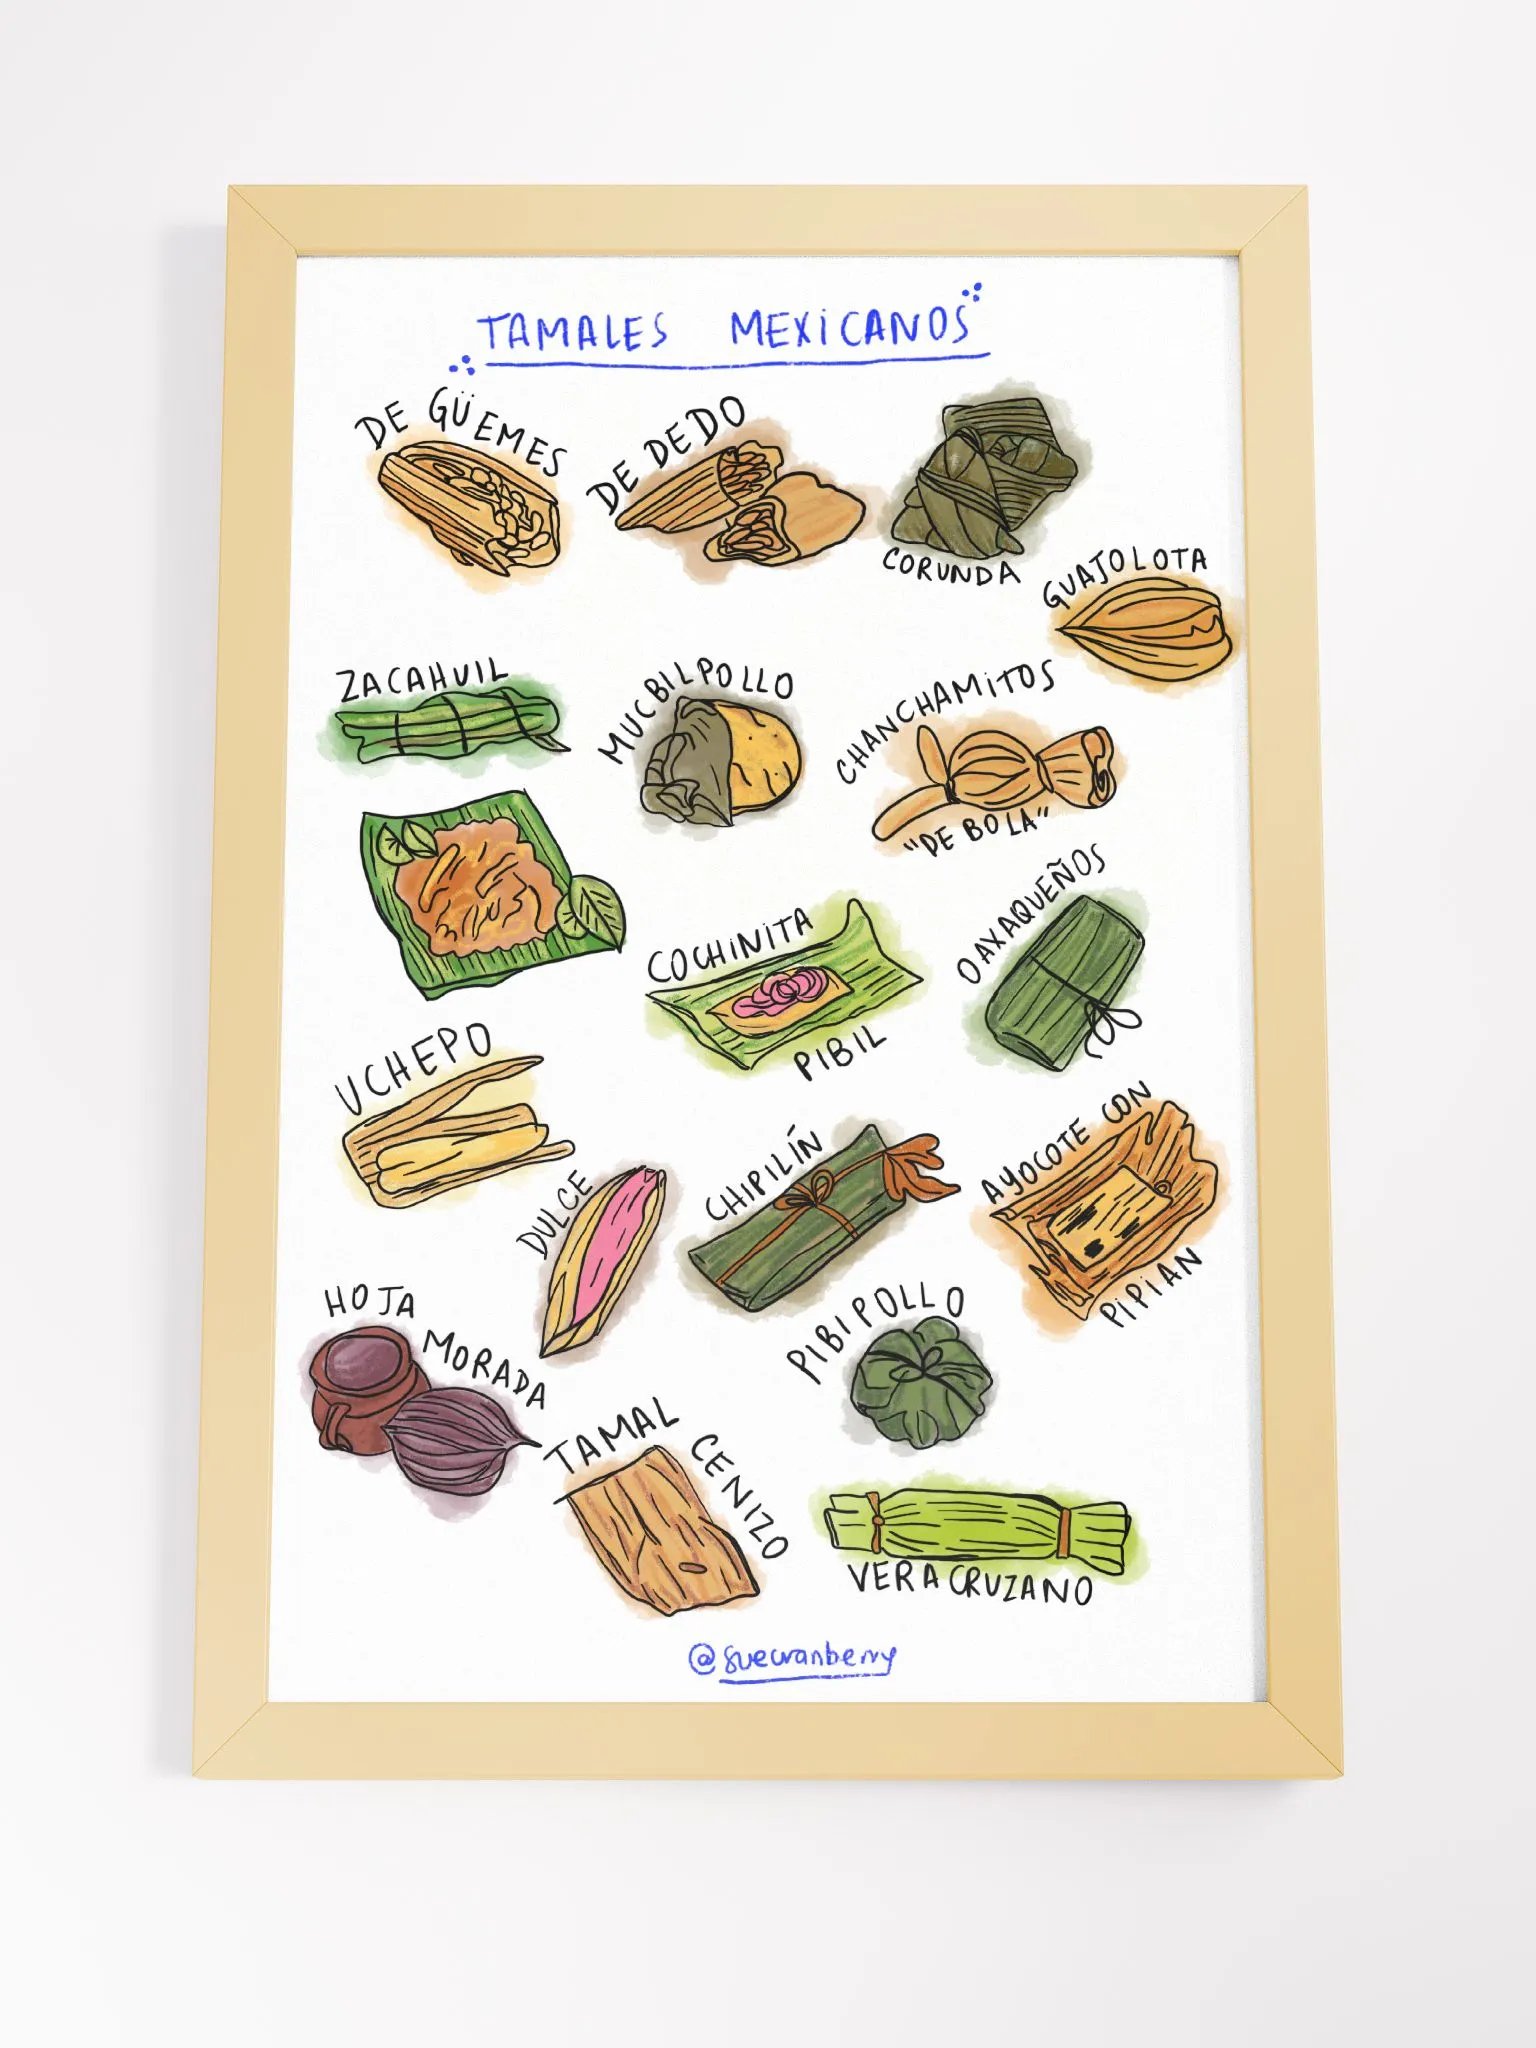 TAMALES MEXICANOS
DE GÜEMES
DE DEDO
CORUNDA
GUAJOLOTA
ZACAHUIL
MUCBILPOLLO
CHANCHAMITOS
"DE BOLA"
COCHINITA
PIBIL
OAXAQUEÑOS
UCHEPO
DULCE
CHIPILÍN
AYOCOTE CON
PIPIAN
HOJA
MORADA
PIBIPOLLO
TAMAL
CENIZO
VERACRUZANO
@suecranberry